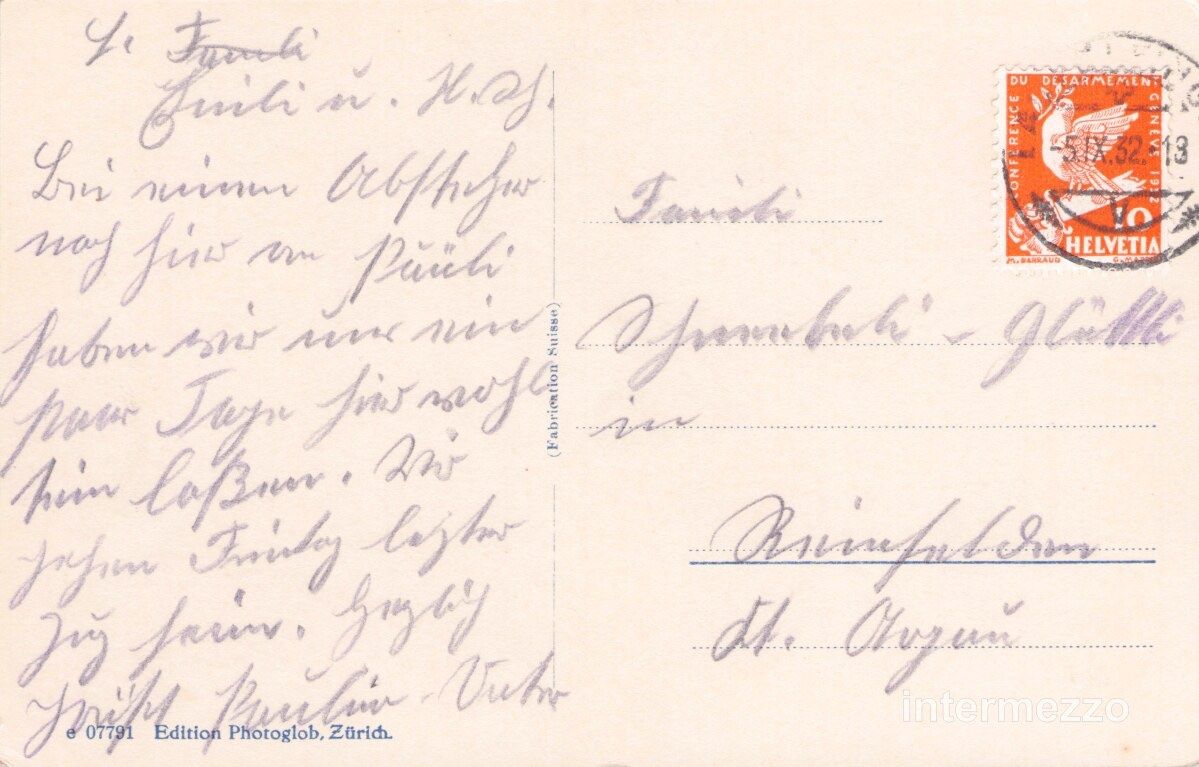 L. Famili
Emili u. H. Sch.
Bei einem Abstecher
nach hier an
haben wir uns ein
paar Tage hier wohl
sein laßen. Wir
gehen Freitag letzter
Zug heim. Herzlich
grüßt Pauline - Vater
e 07791 Edition Photoglob, Zürich.
(Fabrication Suisse)
CONFERENCE DU DESARMEMENT GENEVE 1932
-5.IX.32.-13
V
10
HELVETIA
M. BARRAUD
Famili
in
Reinfelden
Kt. Argau
intermezzo